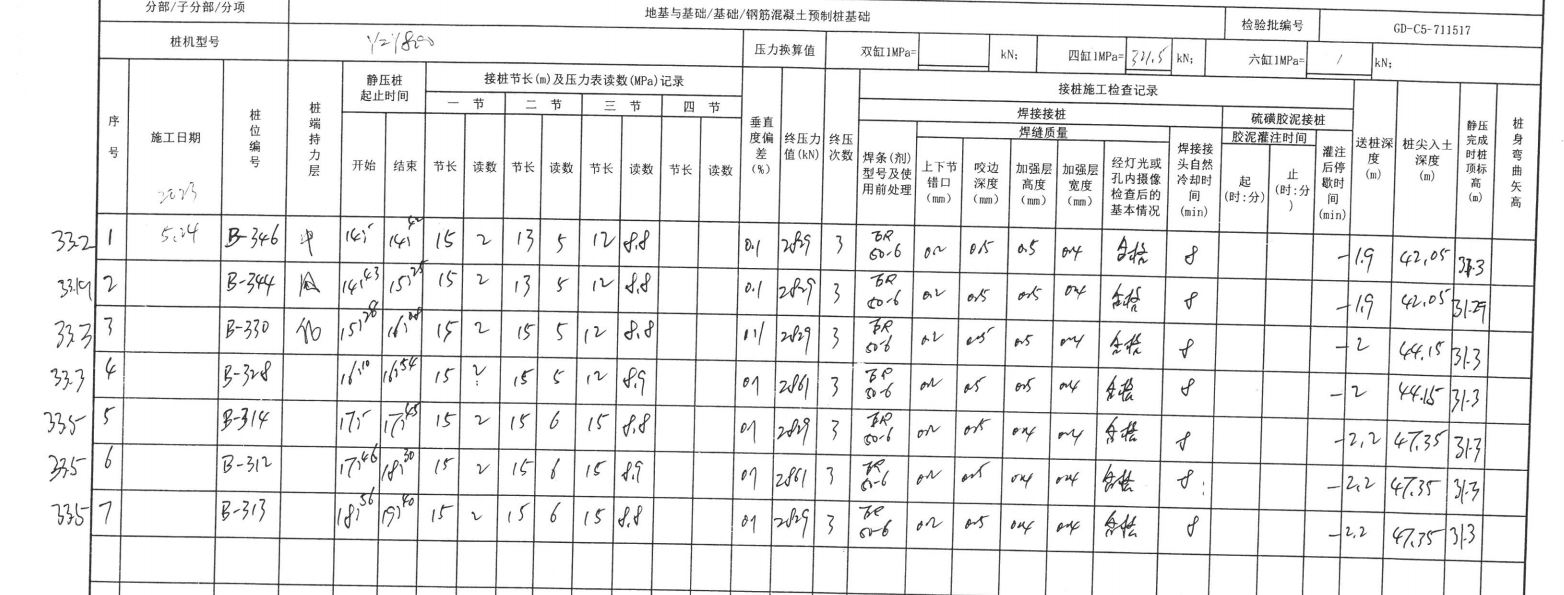 分部/子分部/分项 地基与基础/基础/钢筋混凝土预制桩基础 检验批编号 GD-C5-711517
桩机型号 压力换算值 双缸1MPa= kN; 四缸1MPa= 321.5 kN; 六缸1MPa= / kN;
序号 施工日期 2023 桩位编号 桩端持力层 静压桩起止时间 开始 结束
接桩节长(m)及压力表读数(MPa)记录
一节 二节 三节 四节
节长 读数 节长 读数 节长 读数 节长 读数
垂直度偏差(%) 终压力值(kN) 终压次数
接桩施工检查记录
焊接接桩 硫磺胶泥接桩
焊缝质量 胶泥灌注时间
焊条(剂)型号及使用前处理 上下节错口(mm) 咬边深度(mm) 加强层高度(mm) 加强层宽度(mm) 经灯光或孔内摄像检查后的基本情况 焊接接头自然冷却时间(min) 起(时:分) 止(时:分) 灌注后停歇时间(min)
送桩深度(m) 桩尖入土深度(m) 静压完成时桩顶标高(m) 桩身弯曲矢高
33.2 1 5.24 B-346 中 14,5 14,42 15 2 13 5 12 8.8 0.1 2829 3 ER50-6 0.2 0.5 0.5 0.4 合格 8 -1.9 42.05 31.3
33.19 2 B-344 14,43 15,25 15 2 13 5 12 8.8 0.1 2829 3 ER50-6 0.2 0.5 0.5 0.4 合格 8 -1.9 42.05 31.29
33.3 3 B-330 15,28 16,08 15 2 15 5 12 8.8 0.1 2829 3 ER50-6 0.2 0.5 0.5 0.4 合格 8 -2 44.15 31.3
33.3 4 B-328 16,10 16,54 15 2 15 5 12 8.9 0.1 2861 3 ER50-6 0.2 0.5 0.5 0.4 合格 8 -2 44.15 31.3
33.5 5 B-314 17,5 17,45 15 2 15 6 15 8.8 0.1 2829 3 ER50-6 0.2 0.5 0.4 0.4 合格 8 -2.2 47.35 31.3
33.5 6 B-312 17,46 18,30 15 2 15 6 15 8.9 0.1 2861 3 ER50-6 0.2 0.5 0.4 0.4 合格 8 -2.2 47.35 31.3
33.5 7 B-313 18,56 19,40 15 2 15 6 15 8.8 0.1 2829 3 ER50-6 0.2 0.5 0.4 0.4 合格 8 -2.2 47.35 31.3